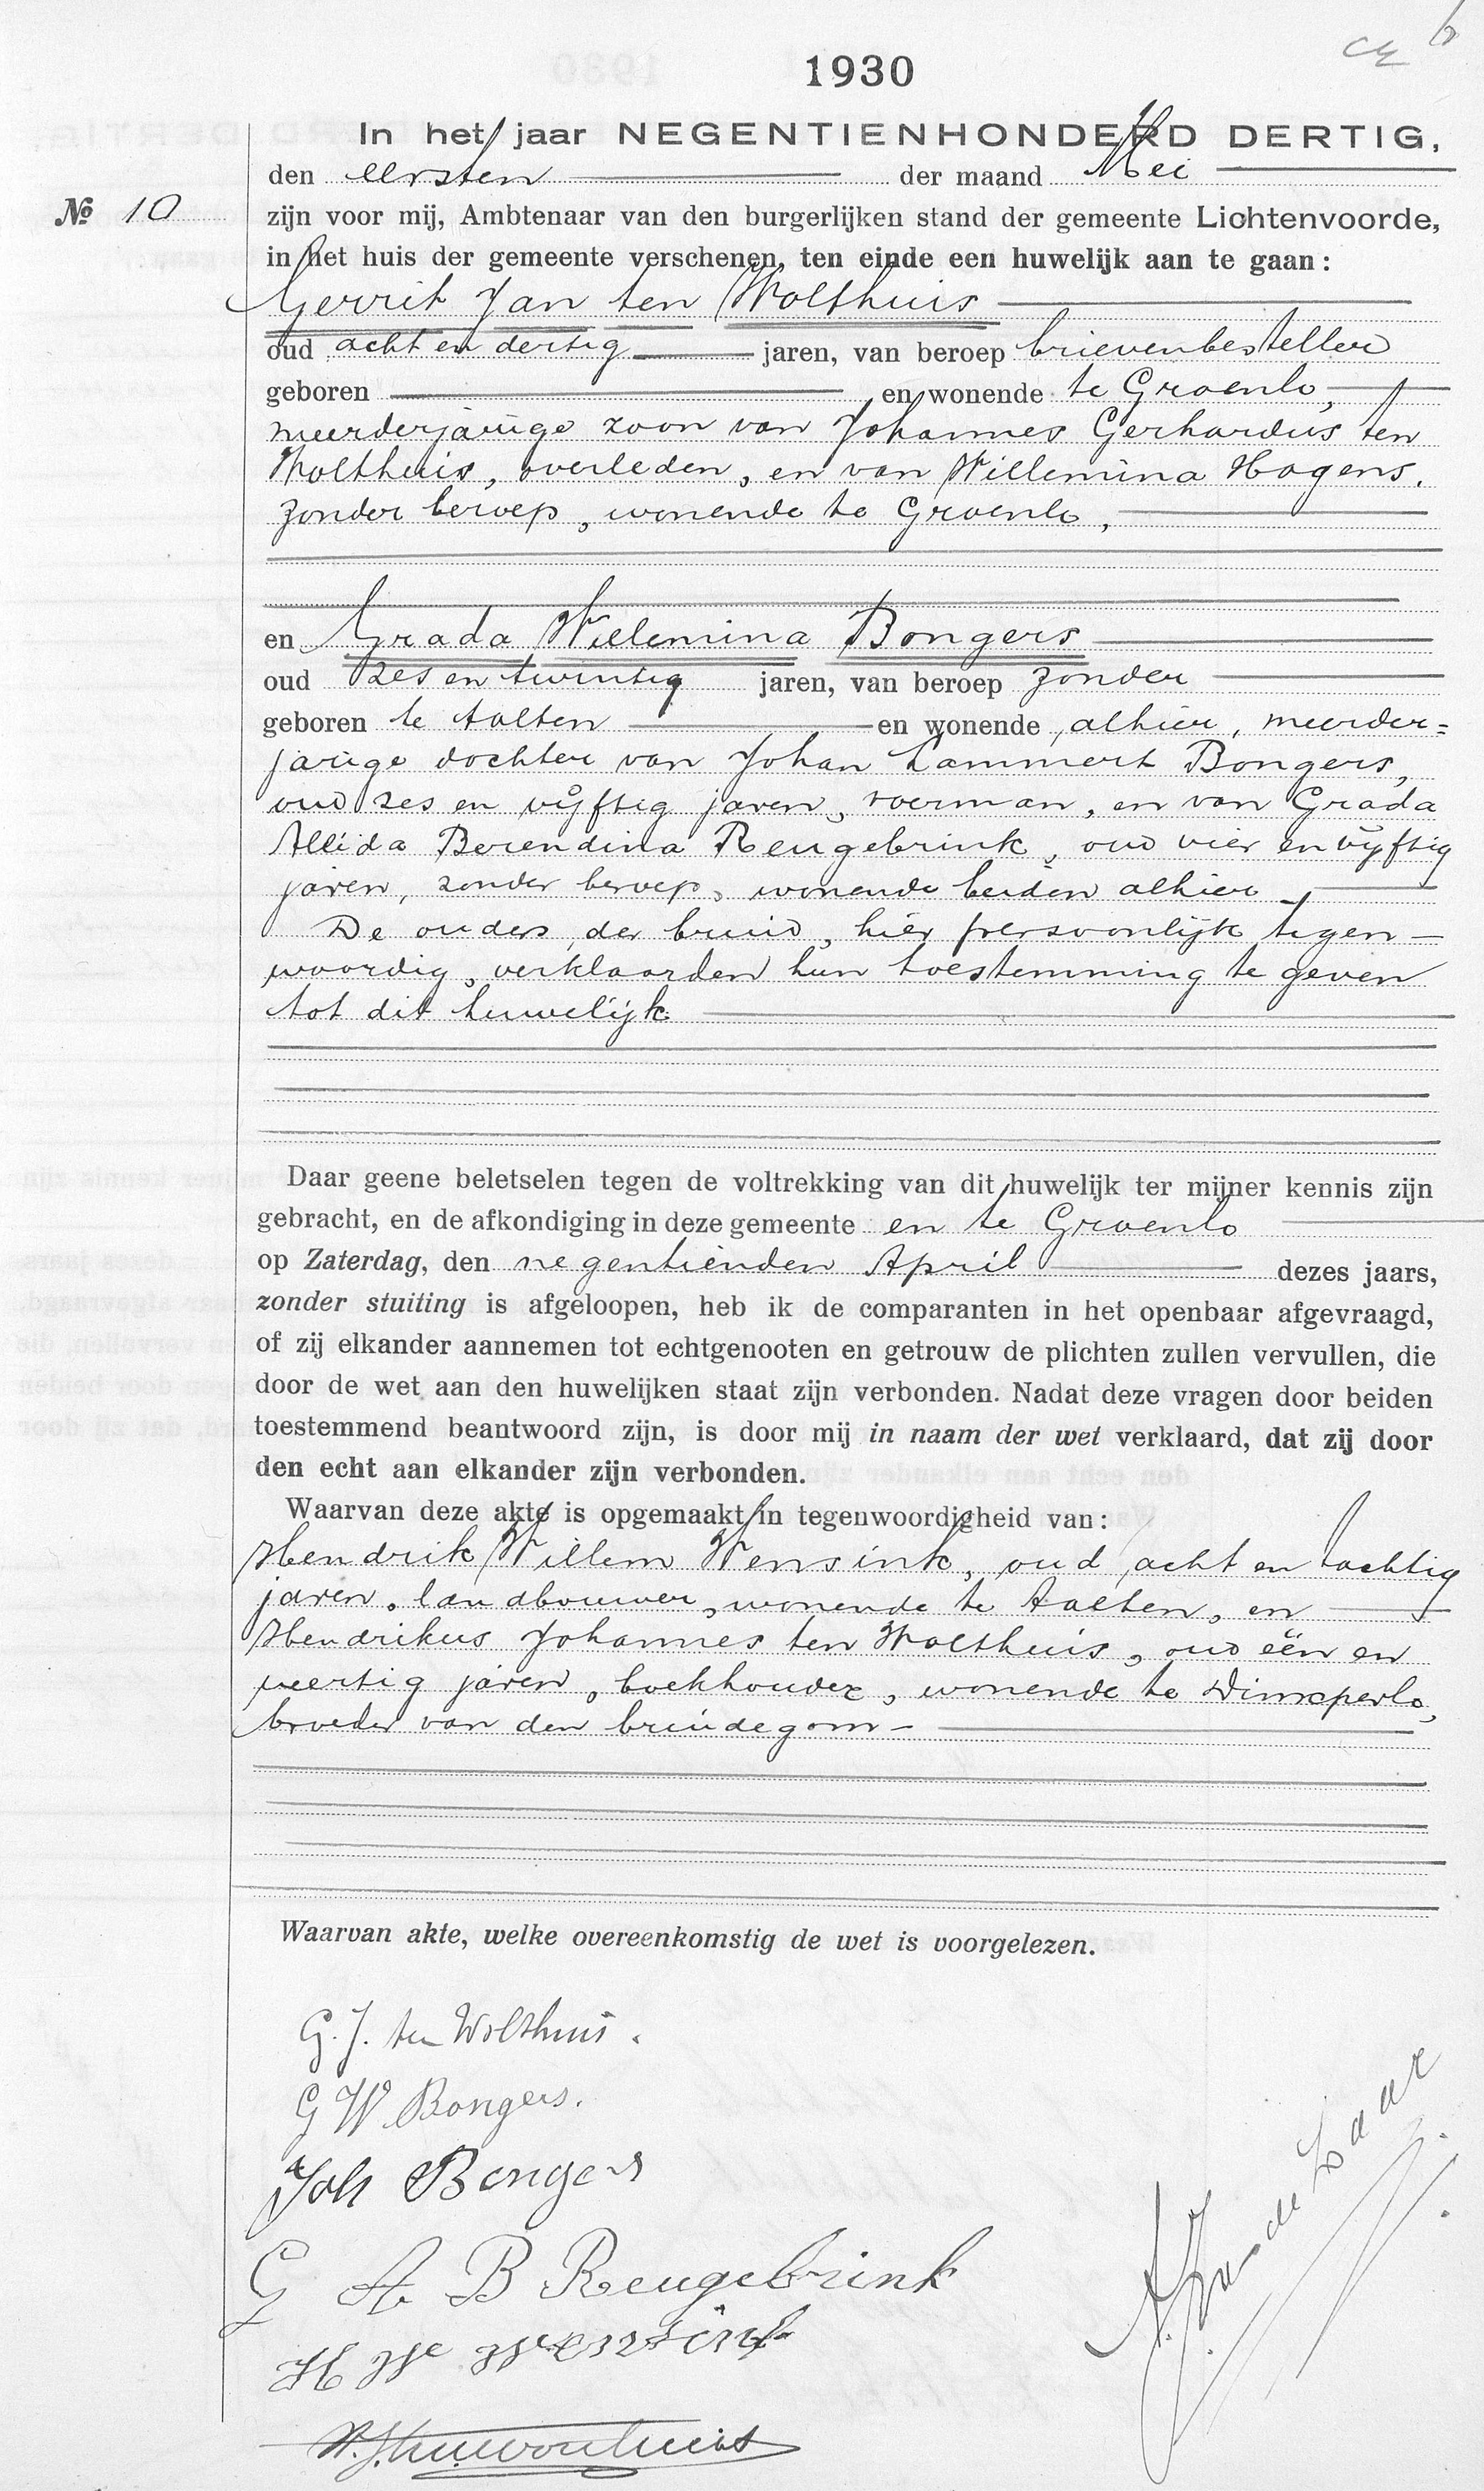 6
1930
In het jaar NEGENTIENHONDERD DERTIG,
den eersten der maand Mei
№ 10
zijn voor mij, Ambtenaar van den burgerlijken stand der gemeente Lichtenvoorde,
in het huis der gemeente verschenen, ten einde een huwelijk aan te gaan:
Gerrit Jan ten Wolthuis
oud acht en dertig jaren, van beroep brievenbesteller
geboren en wonende te Groenlo,
meerderjarige zoon van Johannes Gerhardus ten
Wolthuis, overleden, en van Willemina Hogens,
zonder beroep, wonende te Groenlo,
en Grada Willemina Bongers
oud zes en twintig jaren, van beroep zonder
geboren te Aalten en wonende alhier, meerder=
jarige dochter van Johan Lammert Bongers,
oud zes en vijftig jaren, voerman, en van Grada
Allida Berendina Reugebrink, oud vier en vijftig
jaren, zonder beroep, wonende beiden alhier
De ouders der bruid, hier persoonlijk tegen-
woordig, verklaarden hun toestemming te geven
tot dit huwelijk
Daar geene beletselen tegen de voltrekking van dit huwelijk ter mijner kennis zijn
gebracht, en de afkondiging in deze gemeente en te Groenlo
op Zaterdag, den negentienden April dezes jaars,
zonder stuiting is afgeloopen, heb ik de comparanten in het openbaar afgevraagd,
of zij elkander aannemen tot echtgenooten en getrouw de plichten zullen vervullen, die
door de wet aan den huwelijken staat zijn verbonden. Nadat deze vragen door beiden
toestemmend beantwoord zijn, is door mij in naam der wet verklaard, dat zij door
den echt aan elkander zijn verbonden.
Waarvan deze akte is opgemaakt in tegenwoordigheid van:
Hendrik Willem Wensink, oud acht en tachtig
jaren, landbouwer, wonende te Aalten, en
Hendrikus Johannes ten Wolthuis, oud één en
veertig jaren, boekhouder, wonende te Dinxperlo,
broeder van den bruidegom -
Waarvan akte, welke overeenkomstig de wet is voorgelezen.
G. J. ten Wolthuis.
G W Bongers.
Joh Bongers
G A B Reugebrink
H W Wensink
H. J. ten Wolthuis
A. J. van de Laar